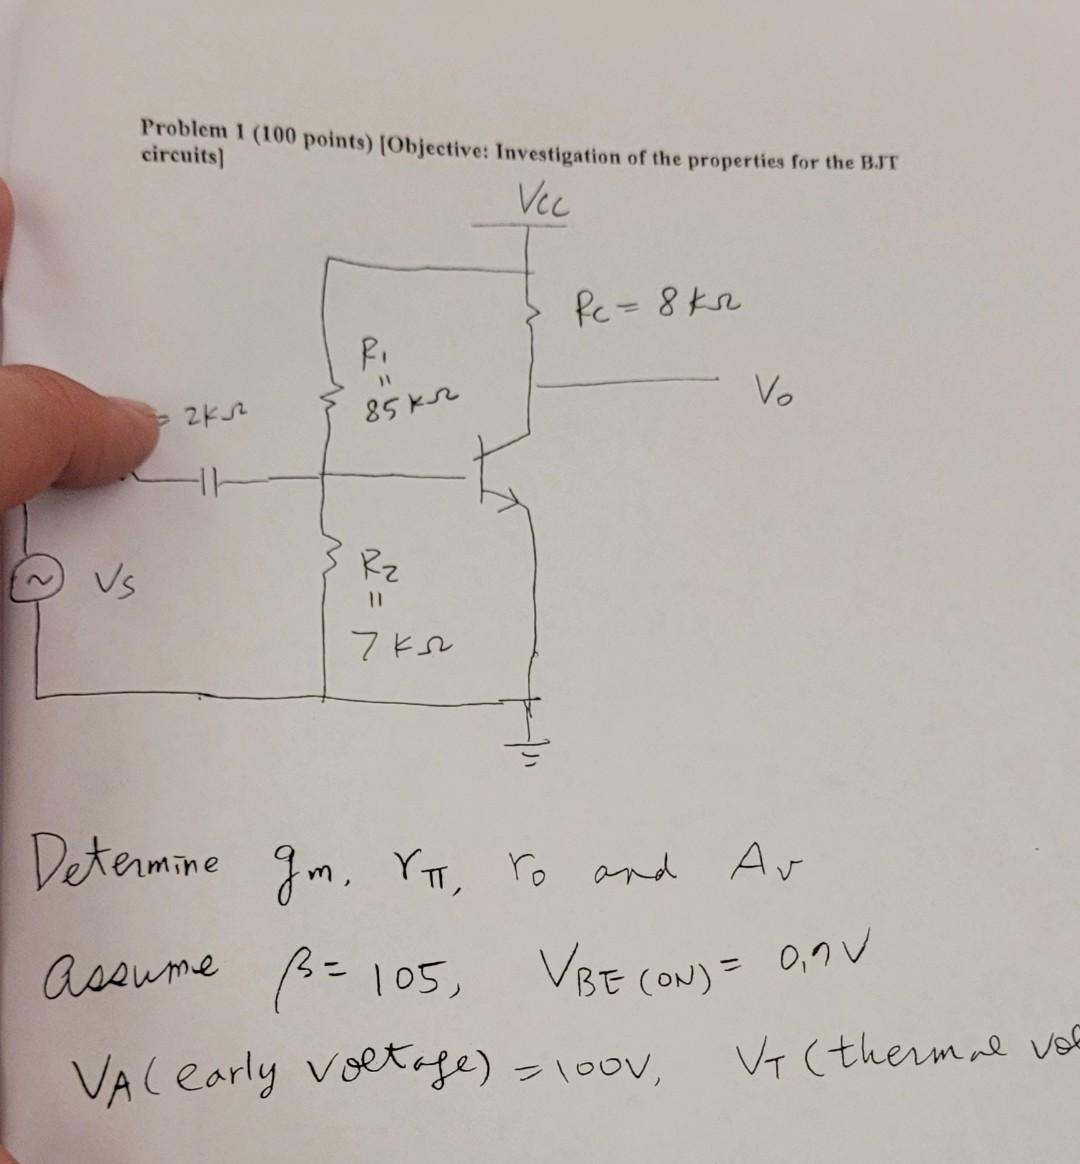 Problem 1 (100 points) [Objective: Investigation of the properties for the BJT
circuits]
Vcc
Rc = 8 kΩ
R1
=
85 kΩ
Vo
= 2kΩ
Vs
R2
=
7 kΩ
Determine gm, rπ, ro and Av
assume β = 105, VBE (ON) = 0,7V
VA (early voltage) = 100V, VT (thermal